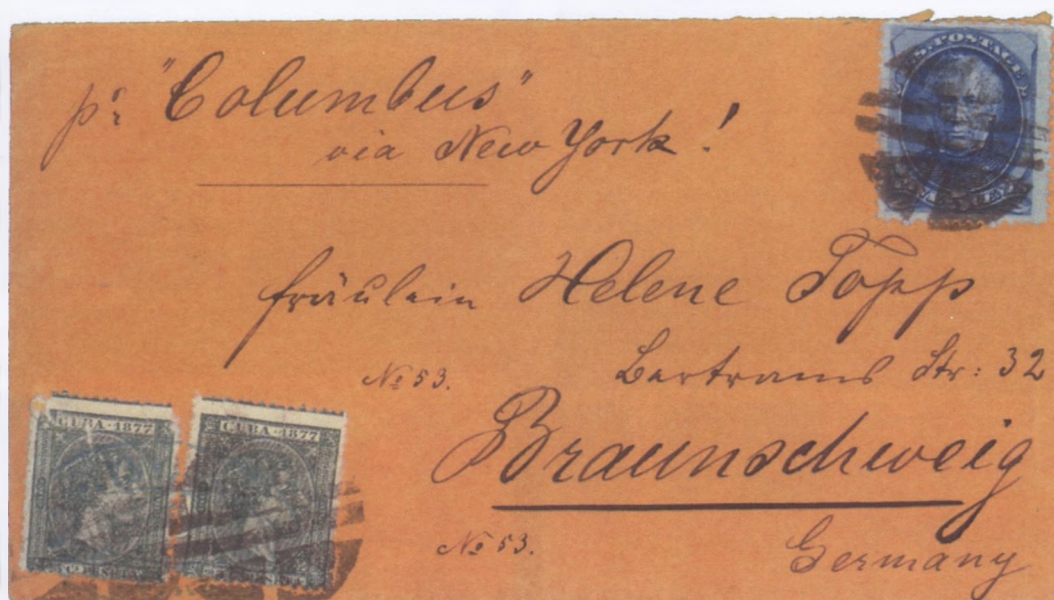 pr "Columbus"
via New York!
U.S. POSTAGE
fräulein Helene Topp
Bertrams Str: 32
No 53.
Braunschweig
No 53.
Germany
CUBA - 1877
CUBA - 1877